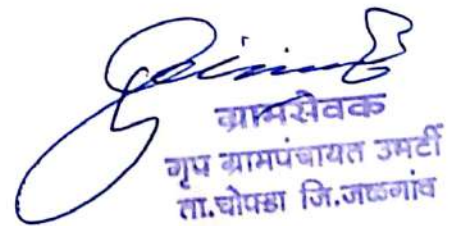 ग्रामसेवक
गृप ग्रामपंचायत उमर्टी
ता.चोपडा जि.जळगांव